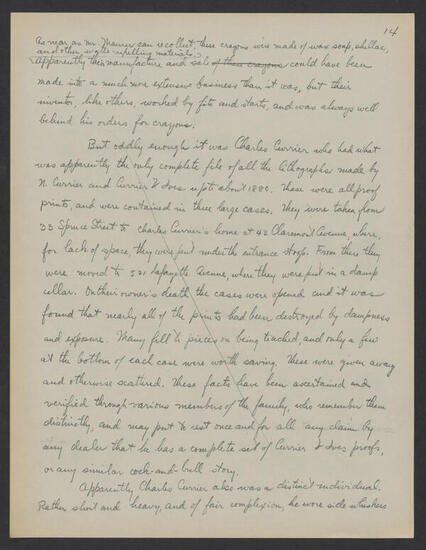 14
As near as Mr. Maurer can recollect, these crayons were made of wax soap, shellac,
and other water-repelling materials.
Apparently their manufacture and sale of these crayons could have been
made into a much more extensive business than it was, but their
inventor, like others, worked by fits and starts, and was always well
behind his orders for crayons.
But oddly enough it was Charles Currier who had what
was apparently the only complete file of all the lithographs made by
N. Currier and Currier & Ives up to about 1880. These were all proof
prints, and were contained in three large cases. They were taken from
33 Spruce Street to Charles Currier's home at 42 Claremont Avenue, where,
for lack of space, they were put under the entrance stoop. From there they
were moved to 521 Lafayette Avenue, where they were put in a damp
cellar. On their owner's death the cases were opened and it was
found that nearly all of the prints had been destroyed by dampness
and exposure. Many fell to pieces on being touched, and only a few
at the bottom of each case were worth saving. These were given away
and otherwise scattered. These facts have been ascertained and
verified through various members of the family, who remember them
distinctly, and may put to rest once and for all any claim by
any dealer that he has a complete set of Currier & Ives proofs,
or any similar cock-and-bull story.
Apparently Charles Currier also was a distinct individual.
Rather short and heavy, and of fair complexion, he wore side whiskers